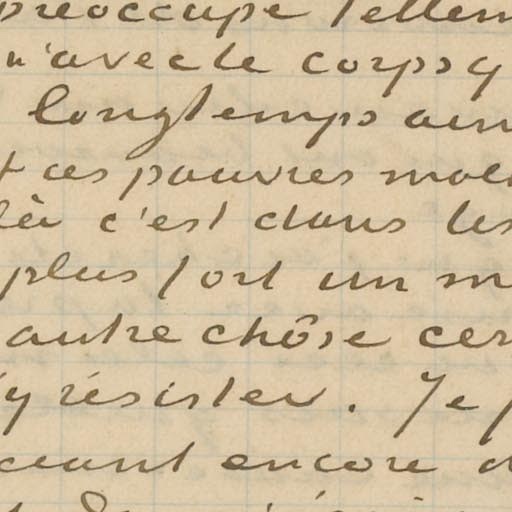 préoccupe tellem
n'avec le corps q
longtemps ain
t ces pauvres mal
là c'est dans les
plus fort un m
autre chôse cer
y résister. Je p
ceant encore d